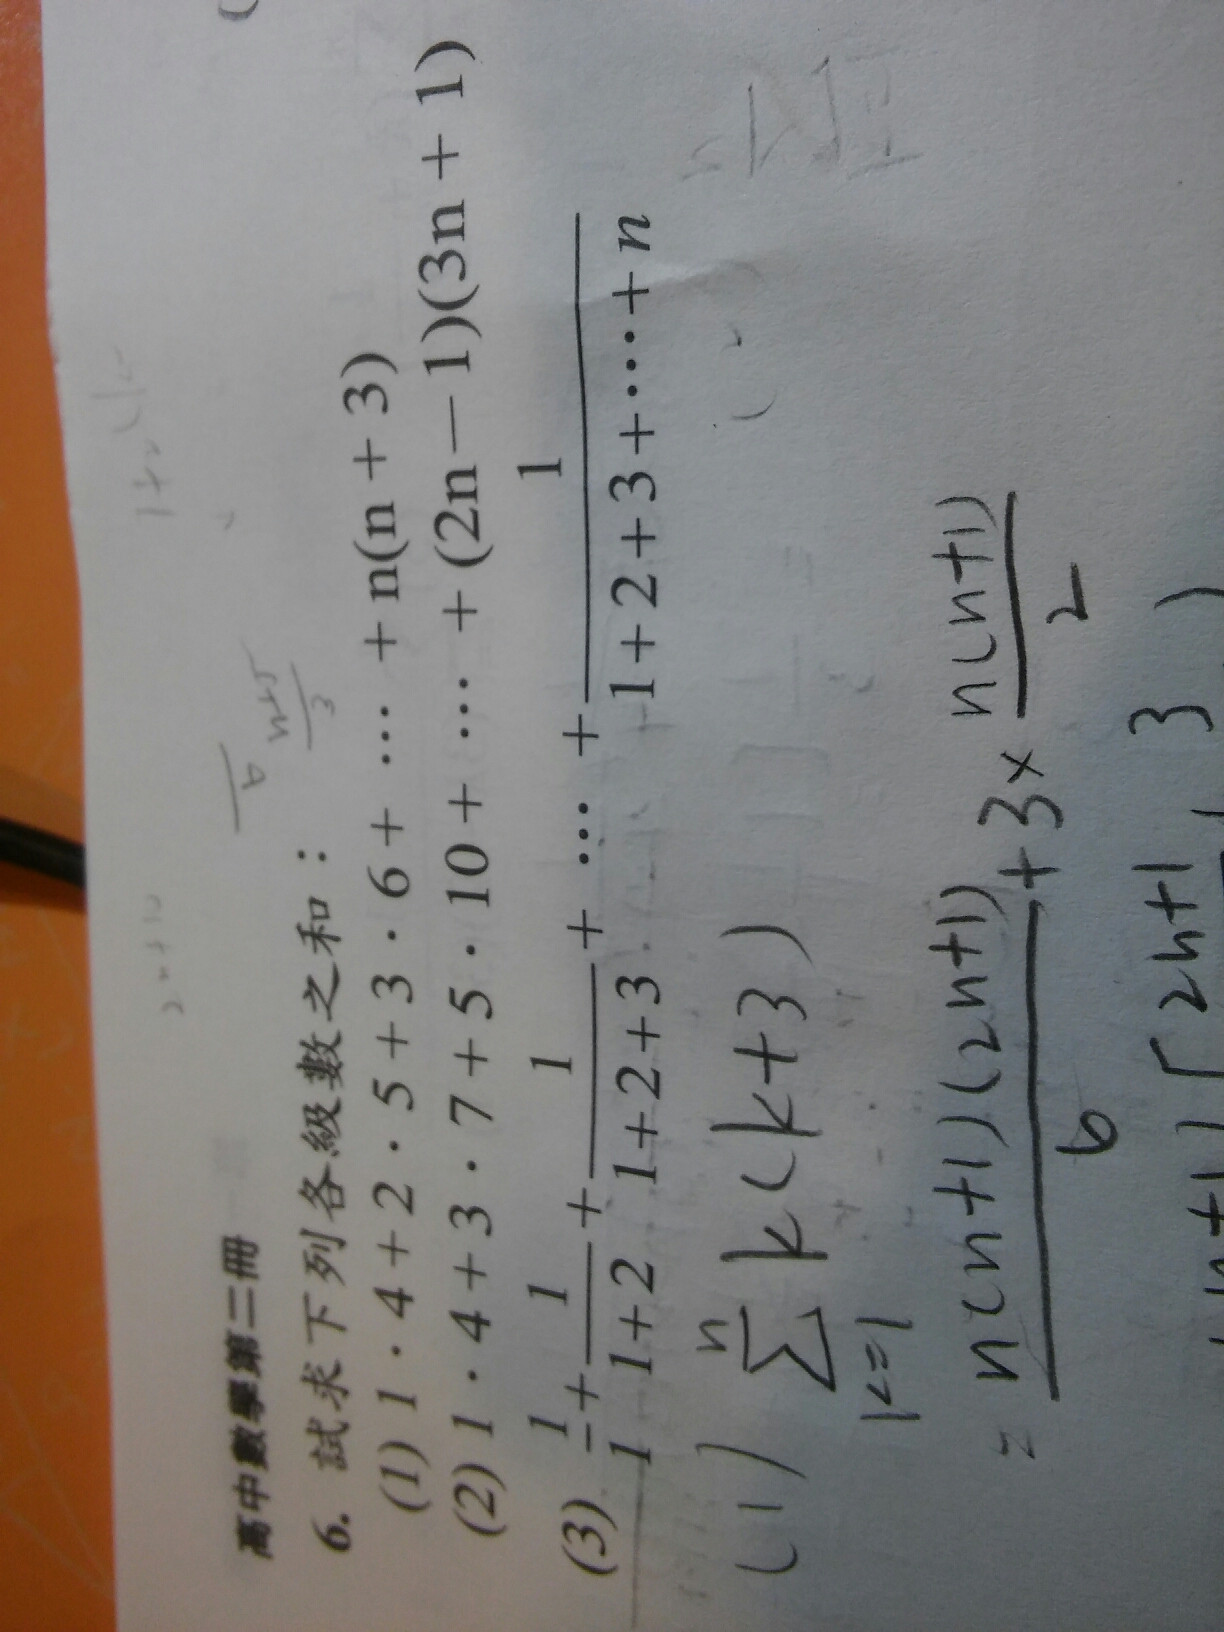 高中數學第二冊
6. 試求下列各級數之和：
(1) 1．4+2．5+3．6+ … +n(n+3)
(2) 1．4+3．7+5．10+ … +(2n－1)(3n+1)
(3) 1/1 + 1/(1+2) + 1/(1+2+3) + … + 1/(1+2+3+‥‥+n)
(1) n∑k=1 k(k+3)
= n(n+1)(2n+1)/6 + 3× n(n+1)/2
2n+1 3